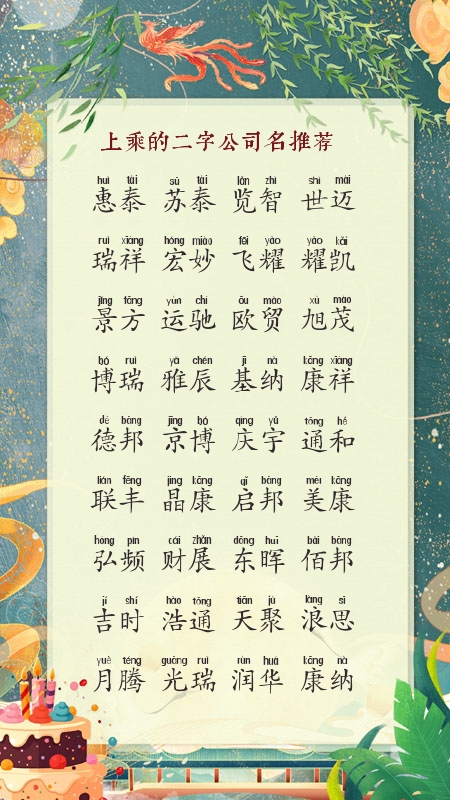 上乘的二字公司名推荐
huì tài sū tài lǎn zhì shì mài
惠泰 苏泰 览智 世迈
ruì xiáng hóng miào fēi yào yào kǎi
瑞祥 宏妙 飞耀 耀凯
jǐng fāng yùn chí ōu mào xù mào
景方 运驰 欧贸 旭茂
bó ruì yǎ chén jī nà kāng xiáng
博瑞 雅辰 基纳 康祥
dé bāng jīng bó qìng yǔ tōng hé
德邦 京博 庆宇 通和
lián fēng jīng kāng qǐ bāng měi kāng
联丰 晶康 启邦 美康
hóng pín cái zhǎn dōng huī bǎi bāng
弘频 财展 东晖 佰邦
jí shí hào tōng tiān jù làng sī
吉时 浩通 天聚 浪思
yuè téng guāng ruì rùn huá kāng nà
月腾 光瑞 润华 康纳